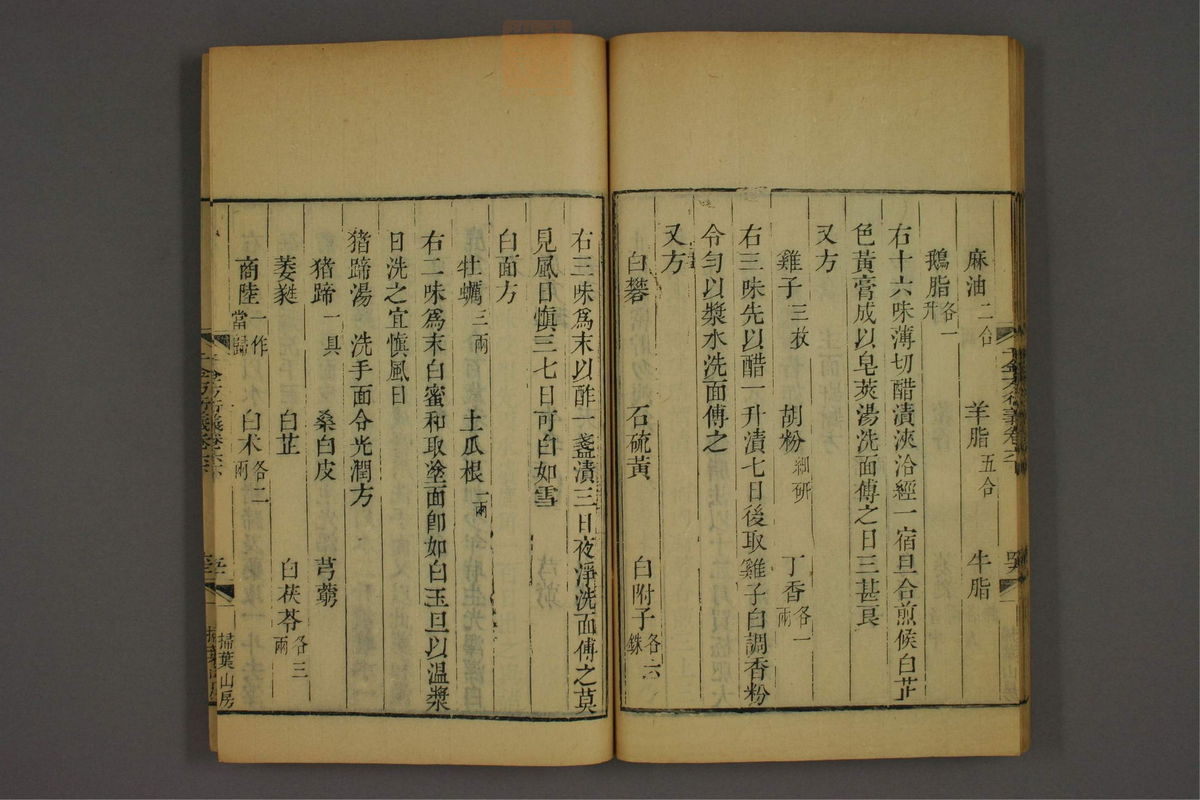 麻油二合 羊脂五合 牛脂
鵝脂各一升
右十六味薄切醋漬浹洽經一宿旦合煎候白芷
色黃膏成以皂莢湯洗面傅之日三甚良
又方
雞子三枚 胡粉細研 丁香各一兩
右三味先以醋一升漬七日後取雞子白調香粉
令勻以漿水洗面傅之
又方
白礬 石硫黃 白附子各六銖
右三味為末以酢一盞漬三日夜淨洗面傅之莫
見風日慎三七日可白如雪
白面方
牡蠣三兩 土瓜根一兩
右二味為末白蜜和取塗面卽如白玉旦以温漿
日洗之宜慎風日
猪蹄湯 洗手面令光潤方
猪蹄一具 桑白皮 芎藭
葳蕤 白芷 白茯苓各三兩
商陸一作當歸 白术各二兩
千金方衍義卷六
掃葉山房